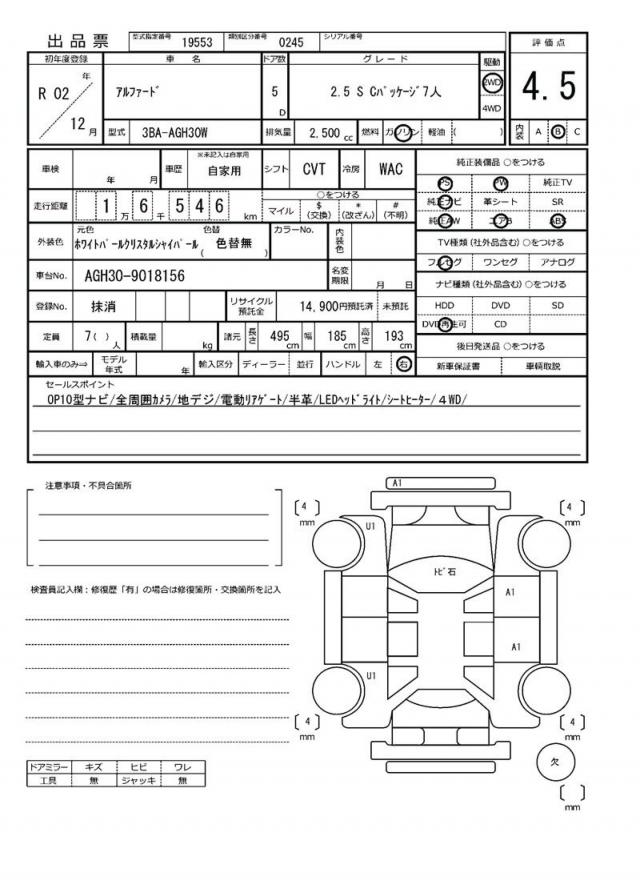 出品票 型式指定番号 19553 類別区分番号 0245 シリアル番号
初年度登録 車名 ドア数 グレード 駆動 評価点
R 02 年 12 月 アルファード 5 D 2.5 S Cパッケージ7人 2WD 4WD 4.5
型式 3BA-AGH30W 排気量 2,500 cc 燃料 ガソリン 軽油 ( ) 内装 A B C
車検 年 月 車歴 ※未記入は自家用 自家用 シフト CVT 冷房 WAC
純正装備品 ○をつける
PS PW 純正TV
純正ナビ 革シート SR
純正AW エアB ABS
走行距離 1 万 6 千 5 4 6 km ○をつける
マイル $ (交換) * (改ざん) # (不明)
外装色 元色 ホワイトパールクリスタルシャイパール 色替 ( 色替無 ) カラーNo. 内装色
TV種類 (社外品含む) ○をつける
フルセグ ワンセグ アナログ
車台No. AGH30-9018156 名変期限 月 日
ナビ種類 (社外品含む) ○をつける
HDD DVD SD
DVD再生可 CD
登録No. 抹消 リサイクル預託金 14,900円預託済 未預託
定員 7( ) 人 積載量 kg 諸元 長さ 495 cm 幅 185 cm 高さ 193 cm
後日発送品 ○をつける
新車保証書 車輌取説
輸入車のみ⇒ モデル年式 年 輸入区分 ディーラー 並行 ハンドル 左 右
セールスポイント
OP10型ナビ/全周囲カメラ/地デジ/電動リアゲート/半革/LEDヘッドライト/シートヒーター/4WD/
注意事項・不具合箇所
検査員記入欄:修復歴「有」の場合は修復箇所・交換箇所を記入
A1
[4] mm
[4] mm
U1
トビ石
A1
A1
U1
[4] mm
[4] mm
欠
[ ] mm
ドアミラー キズ ヒビ ワレ
工具 無 ジャッキ 無